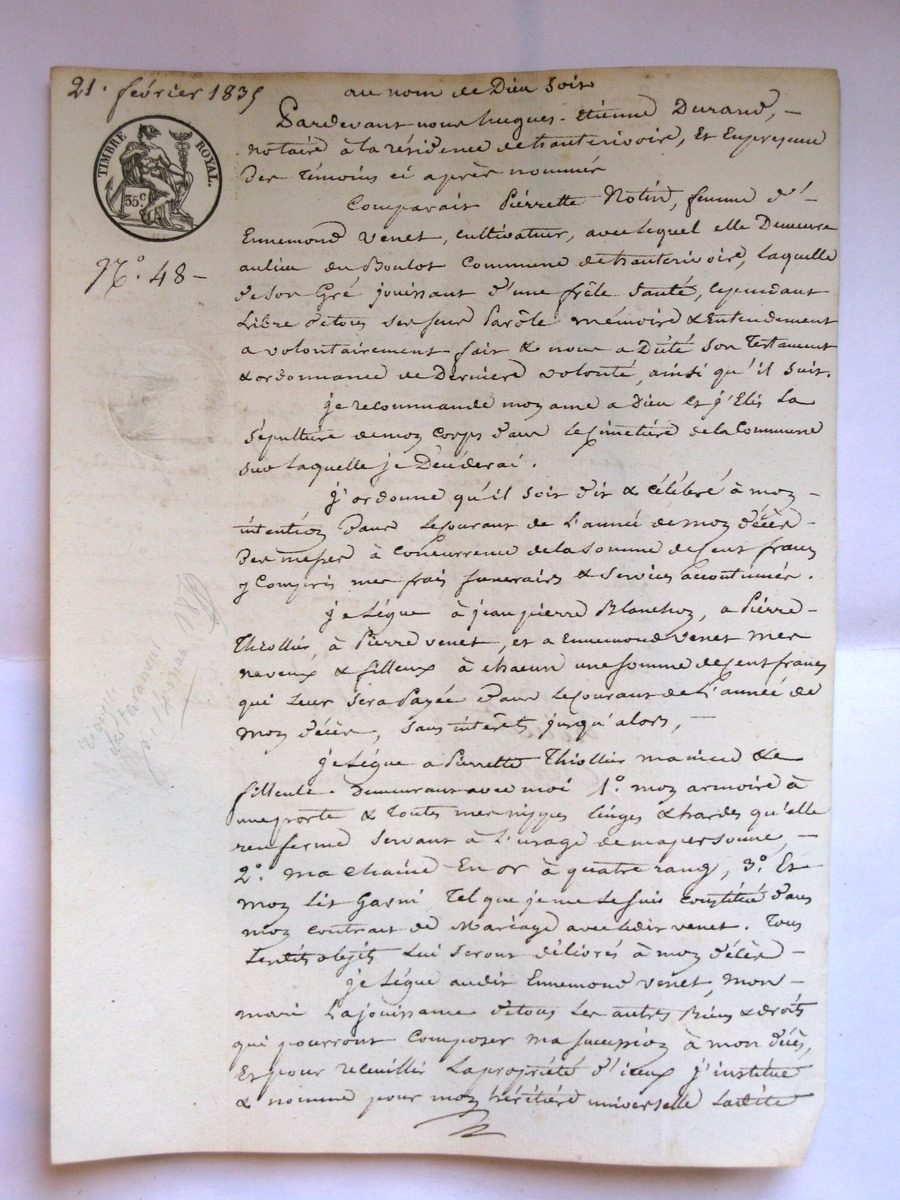 21. février 1835
au nom de Dieu soit
Pardevant nous hugues-Etienne Durand, -
notaire à la résidence de hauterivoire, et En presence
Des Témoins ci après nommés
Comparait Pierrette Notin, femme d'-
Ennemond Venet, cultivateur, avec lequel elle Demeure
au lieu du Boulot Commune de hauterivoire, laquelle
de son Gré jouissant d'une frêle santé, cependant
Libre de tous ses sens Parôle mémoire & Entendement
a volontairement fait & nous a Dicté son Testament
& ordonnance de Derniere volonté, ainsi qu'il suit.
je recommande mon ame a Dieu et j'Elis La
sépulture de mon corps dans le cimetière de la Commune
sur laquelle je Décéderai.
j'ordonne qu'il soit dit & célébré à mon -
intention Dans le courant de L'année de mon décès -
Des messes à Concurrence de la somme de Cent francs
y Compris mes frais funeraires & services accoutumés.
je Légue à jean pierre Blanchon, a Pierre -
Thiollier, à Pierre venet, et a Ennemond Venet mes
neveux & filleux à chacun une somme de Cent francs
qui leur sera Payée Dans le courant de L'année de
mon décès, sans intérêts jusqu'alors, -
je Légue a Pierrette Thiollier ma niece & -
filleule. Demeurant avec moi 1°. mon armoire à
une porte & toutes mes nippes linges & hardes qu'elle
renferme servant à L'usage de ma personne, -
2°. ma chaine En or à quatre rangs, 3°. Et
mon Lit Garni Tel que je me le suis constitué dans
mon contrat de Mariage avec ledit venet. Tous
lesdits objets Lui seront délivrés à mon décès -
je Légue audit Ennemond venet, mon -
mari La jouissance de tous les autres Biens & droits
qui pourront Composer ma succession à mon décès,
Et pour recueillir La propriété d'iceux j'institue
& nomme pour mon héritière universelle Ladite
TIMBRE ROYAL.
35c.
N°. 48 -